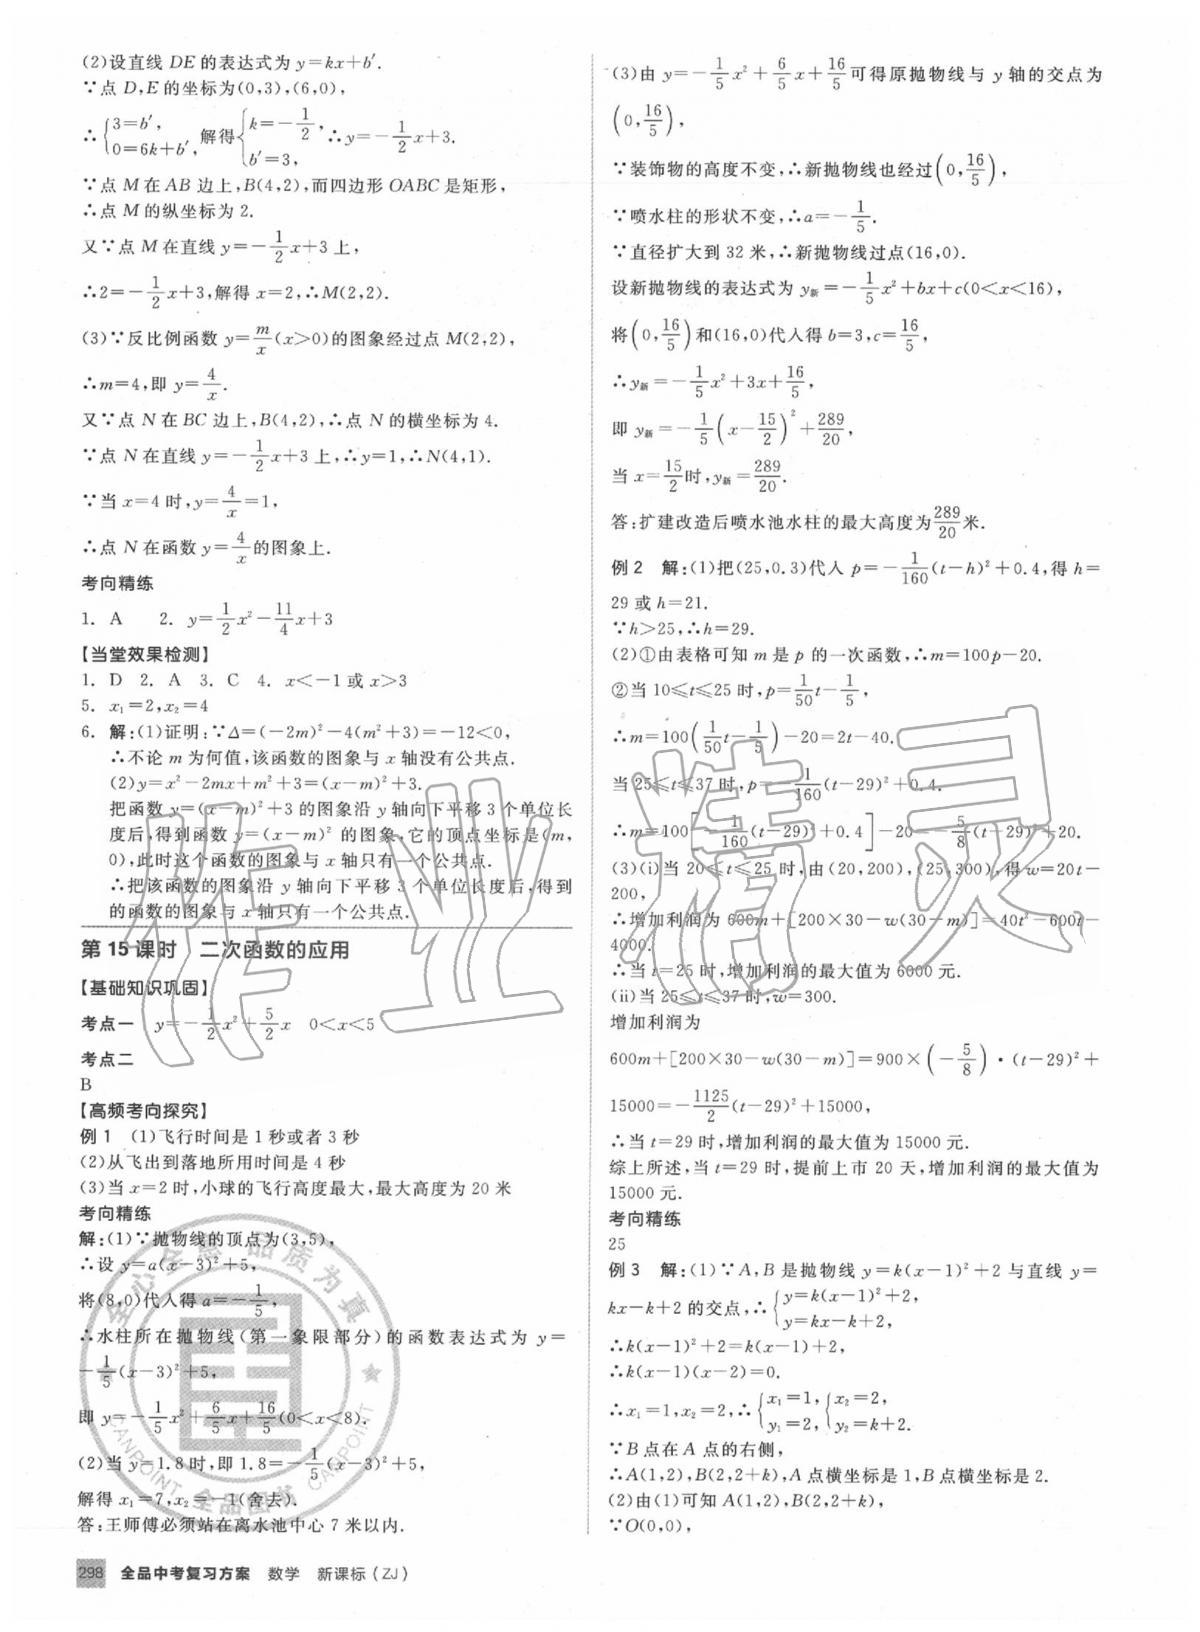 (2)设直线 DE 的表达式为 y=kx+b′.
∵点 D,E 的坐标为(0,3),(6,0),
∴{3=b′, 0=6k+b′, 解得{k=-1/2, b′=3, ∴y=-1/2x+3.
∵点 M 在 AB 边上,B(4,2),而四边形 OABC 是矩形,
∴点 M 的纵坐标为 2.
又∵点 M 在直线 y=-1/2x+3 上,
∴2=-1/2x+3,解得 x=2,∴M(2,2).
(3)∵反比例函数 y=m/x(x>0)的图象经过点 M(2,2),
∴m=4,即 y=4/x.
又∵点 N 在 BC 边上,B(4,2),∴点 N 的横坐标为 4.
∵点 N 在直线 y=-1/2x+3 上,∴y=1,∴N(4,1).
∵当 x=4 时,y=4/x=1,
∴点 N 在函数 y=4/x的图象上.
考向精练
1. A 2. y=1/2x²-11/4x+3
【当堂效果检测】
1. D 2. A 3. C 4. x<-1 或 x>3
5. x₁=2,x₂=4
6. 解:(1)证明:∵Δ=(-2m)²-4(m²+3)=-12<0,
∴不论 m 为何值,该函数的图象与 x 轴没有公共点.
(2)y=x²-2mx+m²+3=(x-m)²+3.
把函数 y=(x-m)²+3 的图象沿 y 轴向下平移 3 个单位长
度后,得到函数 y=(x-m)² 的图象,它的顶点坐标是(m,
0),此时这个函数的图象与 x 轴只有一个公共点.
∴把该函数的图象沿 y 轴向下平移 3 个单位长度后,得到
的函数的图象与 x 轴只有一个公共点.
第 15 课时 二次函数的应用
【基础知识巩固】
考点一 y=-1/2x²+5/2x 0<x<5
考点二
B
【高频考向探究】
例 1 (1)飞行时间是 1 秒或者 3 秒
(2)从飞出到落地所用时间是 4 秒
(3)当 x=2 时,小球的飞行高度最大,最大高度为 20 米
考向精练
解:(1)∵抛物线的顶点为(3,5),
∴设 y=a(x-3)²+5,
将(8,0)代入得 a=-1/5,
∴水柱所在抛物线(第一象限部分)的函数表达式为 y=
-1/5(x-3)²+5,
即 y=-1/5x²+6/5x+16/5(0<x<8).
(2)当 y=1.8 时,即 1.8=-1/5(x-3)²+5,
解得 x₁=7,x₂=-1(舍去).
答:王师傅必须站在离水池中心 7 米以内.
298 全品中考复习方案 数学 新课标(ZJ)
(3)由 y=-1/5x²+6/5x+16/5可得原抛物线与 y 轴的交点为
(0,16/5),
∵装饰物的高度不变,∴新抛物线也经过(0,16/5),
∵喷水柱的形状不变,∴a=-1/5.
∵直径扩大到 32 米,∴新抛物线过点(16,0).
设新抛物线的表达式为 y新=-1/5x²+bx+c(0<x<16),
将(0,16/5)和(16,0)代入得 b=3,c=16/5,
∴y新=-1/5x²+3x+16/5,
即 y新=-1/5(x-15/2)²+289/20,
当 x=15/2时,y新=289/20.
答:扩建改造后喷水池水柱的最大高度为289/20米.
例 2 解:(1)把(25,0.3)代入 p=-1/160(t-h)²+0.4,得 h=
29 或 h=21.
∵h>25,∴h=29.
(2)①由表格可知 m 是 p 的一次函数,∴m=100p-20.
②当 10≤t≤25 时,p=1/50t-1/5,
∴m=100(1/50t-1/5)-20=2t-40.
当 25≤t≤37 时,p=-1/160(t-29)²+0.4.
∴m=100[-1/160(t-29)²+0.4]-20=-5/8(t-29)²+20.
(3)(i)当 20≤t≤25 时,由(20,200),(25,300),得 w=20t-
200,
∴增加利润为 600m+[200×30-w(30-m)]=40t²-600t-
4000.
∴当 t=25 时,增加利润的最大值为 6000 元.
(ii)当 25≤t≤37 时,w=300.
增加利润为
600m+[200×30-w(30-m)]=900×(-5/8)·(t-29)²+
15000=-1125/2(t-29)²+15000,
∴当 t=29 时,增加利润的最大值为 15000 元.
综上所述,当 t=29 时,提前上市 20 天,增加利润的最大值为
15000 元.
考向精练
25
例 3 解:(1)∵A,B 是抛物线 y=k(x-1)²+2 与直线 y=
kx-k+2 的交点,∴{y=k(x-1)²+2, y=kx-k+2,
∴k(x-1)²+2=kx-k+2,
∴k(x-1)(x-2)=0.
∴x₁=1,x₂=2,∴{x₁=1, y₁=2, {x₂=2, y₂=k+2.
∵B 点在 A 点的右侧,
∴A(1,2),B(2,2+k),A 点横坐标是 1,B 点横坐标是 2.
(2)由(1)可知 A(1,2),B(2,2+k),
∵O(0,0),
作业精灵
全心全意 品质为真
CANPOINT 全品图书 CANPOINT